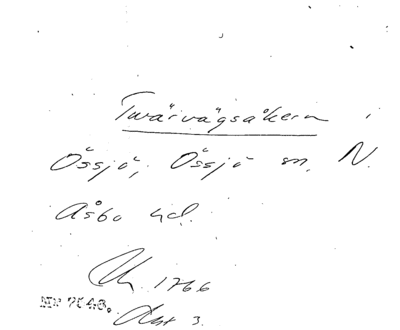 Twärvägsåkern i
Össjö, Össjö sn, N.
Åsbo hd.
Ch. 1766
Akt 3.